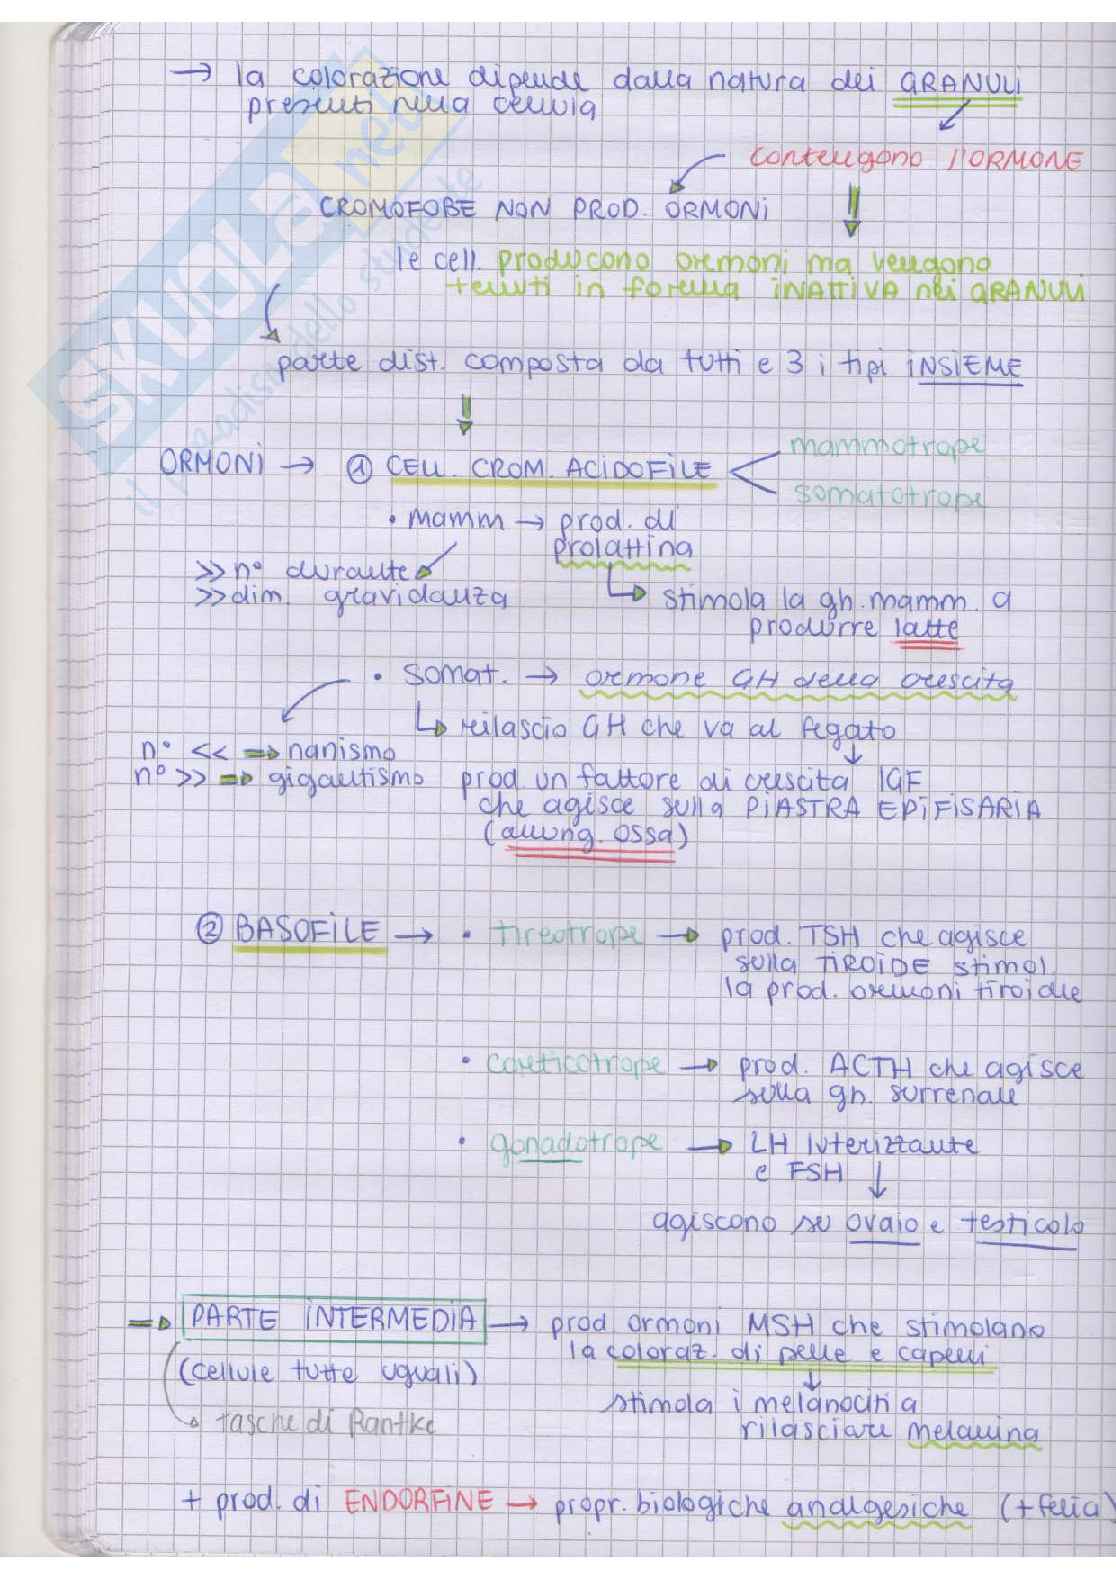 → la colorazione dipende dalla natura dei GRANULI
presenti nella cellula
contengono l'ORMONE
CROMOFOBE NON PROD. ORMONI
le cell. producono ormoni ma vengono
tenuti in forma INATTIVA nei GRANULI
parte dist. composta da tutti e 3 i tipi INSIEME
ORMONI → ① CELL. CROM. ACIDOFILE
mammotrope
somatotrope
• mamm → prod. di
prolattina
>> n° durante
>> dim. gravidanza
stimola la gh. mamm. a
produrre latte
• somat. → ormone GH della crescita
rilascio GH che va al fegato
n° << ⇒ nanismo
n° >> ⇒ gigantismo
prod un fattore di crescita IGF
che agisce sulla PIASTRA EPIFISARIA
(allung. ossa)
② BASOFILE → • tireotrope → prod. TSH che agisce
sulla TIROIDE stimol.
la prod. ormoni tiroidie
• corticotrope → prod. ACTH che agisce
sulla gh. surrenale
• gonadotrope → LH luteizzante
e FSH
agiscono su ovaio e testicolo
⇒ PARTE INTERMEDIA → prod ormoni MSH che stimolano
la coloraz. di pelle e capelli
(cellule tutte uguali)
stimola i melanociti a
tasche di Rantke
rilasciare melanina
+ prod. di ENDORFINE → propr. biologiche analgesiche (+ felia)
SKUOLA.net
il paradiso dello studente